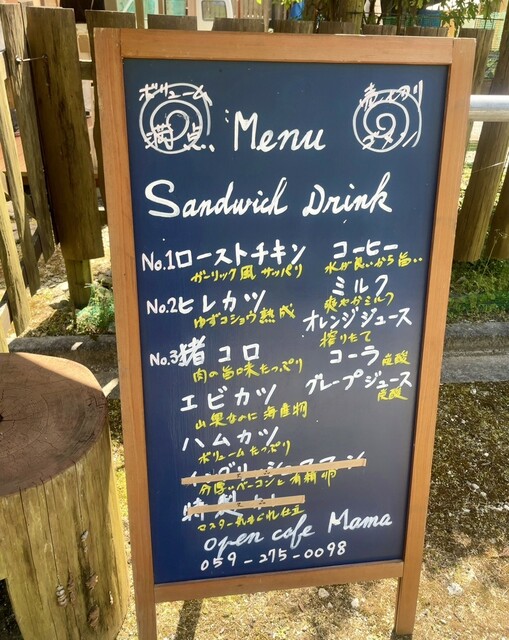 ボリューム
満点、
売り切り
Menu
Sandwich Drink
No.1ローストチキン
ガーリック風 サッパリ
No.2ヒレカツ
ゆずコショウ熟成
No.3猪コロ
肉の旨味たっぷり
エビカツ
山奥なのに海産物
ハムカツ
ボリュームたっぷり
イングリッシュマフィン
分厚いベーコンと有精卵
特製
マスター気まぐれ仕立
コーヒー
水が良いから旨い
ミルク
爽やかミルク
オレンジジュース
搾りたて
コーラ 炭酸
グレープジュース
炭酸
open cafe Mama
059-275-0098